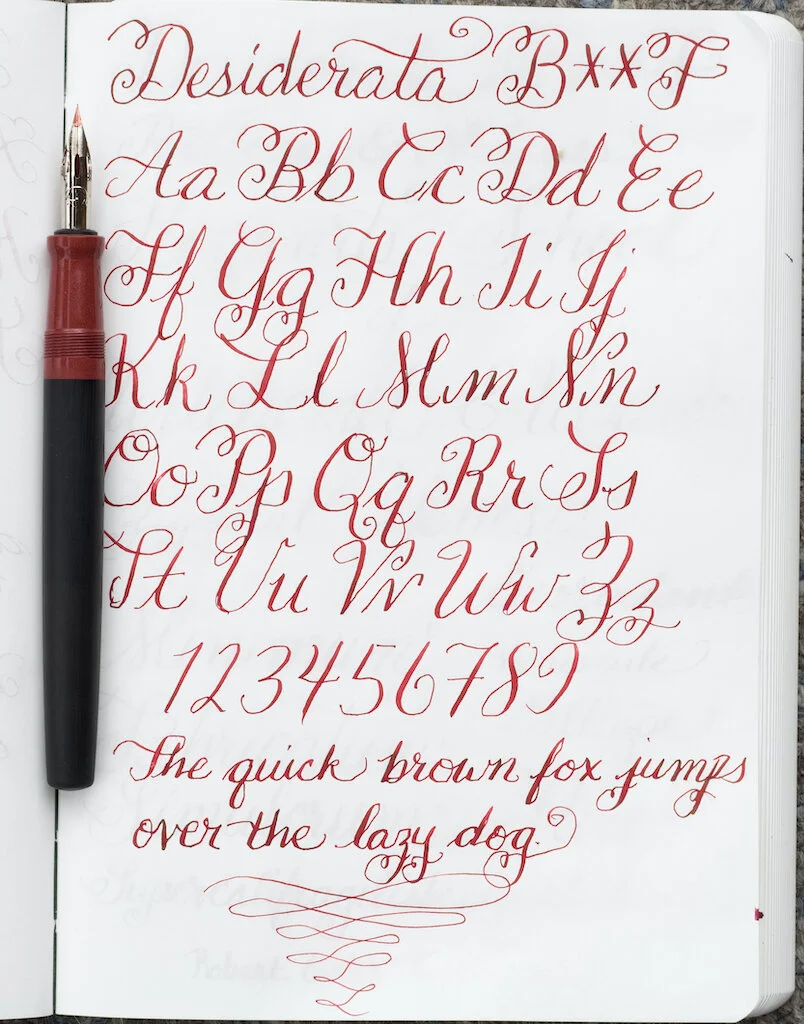 Desiderata B**F
Aa Bb Cc Dd Ee
Ff Gg Hh Ii Jj
Kk Ll Mm Nn
Oo Pp Qq Rr Ss
Tt Uu Vv Ww Zz
123456789
The quick brown fox jumps
over the lazy dog.